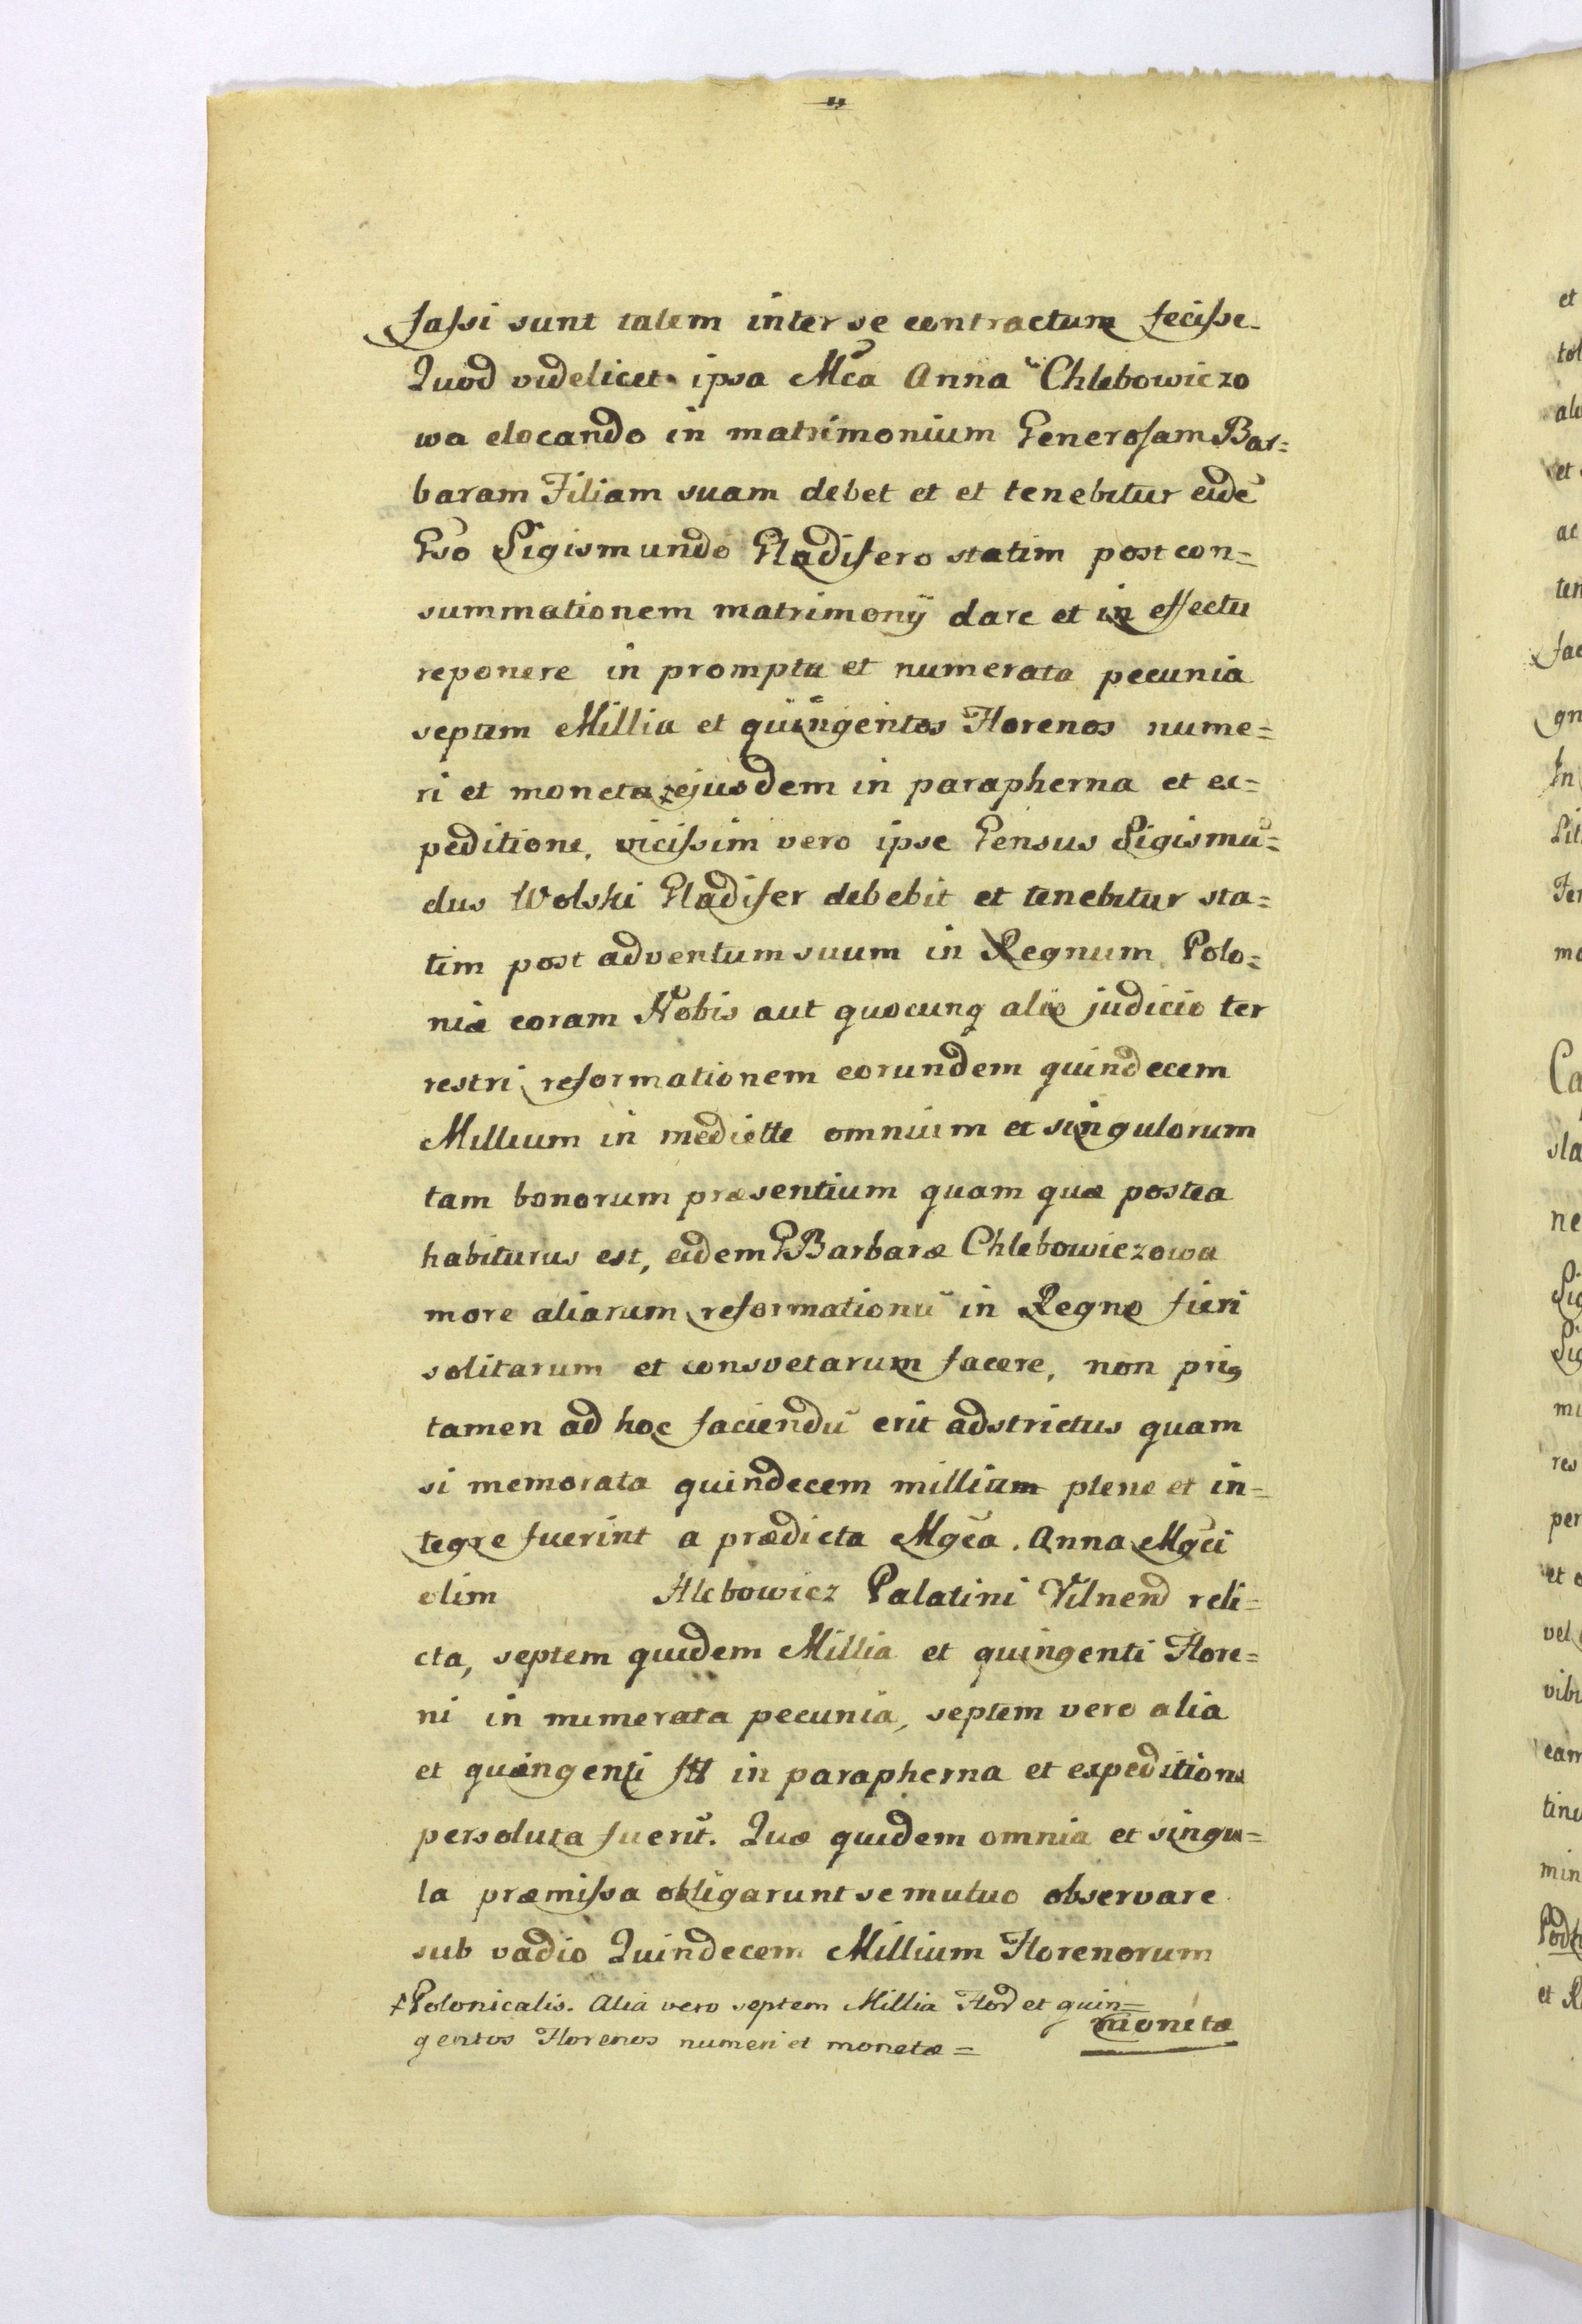 fassi sunt talem inter se contractum fecisse
Quod videlicet ipsa Mca Anna Chlebowiczo
wa elocando in matrimonium Generosam Bar=
baram Filiam suam debet et et tenebitur eidē
Gso Sigismundo Gladifero statim post con=
summationem matrimonij dare et in effectu
reponere in promptu et numerata pecunia
septem Millia et quingentos Florenos nume=
ri et moneta ejusdem in parapherna et ex=
peditione, vicissim vero ipse Gensus Sigismū=
dus Wolski Gladifer debebit et tenebitur sta=
tim post adventum suum in Regnum Polo=
niæ coram Nobis aut quocunq alio judicio ter
restri reformationem eorundem quindecem
Millium in mediette omnium et singulorum
tam bonorum præsentium quam quæ postea
habiturus est, eidem G Barbaræ Chlebowiczowa
more aliarum reformationū in Regno fieri
solitarum et consvetarum facere, non prig
tamen ad hoc faciendū erit adstrictus quam
si memorata quindecem millium plene et in=
tegre fuerint a prædicta Mgca. Anna Mgci
olim Hlebowicz Palatini Vilnen reli=
cta, septem quidem Millia et quingenti Flore=
ni in numerata pecunia, septem vero alia
et quingenti fll in parapherna et expeditione
persoluta fuerīt. Quæ quidem omnia et singu=
la præmissa obligarunt se mutuo observare
sub vadio Quindecem Millium Florenorum
monetæ
+ Polonicalis. Alia vero septem Millia Flor et quin=
gentos Florenos numeri et monetæ =
et
tol
ale
et
ac
ten
fac
gn
In
Lit
Fer
mo
Ca
sla
ne
Sig
Sig
mi
res
per
et o
vel
vibu
eam
tinu
min
Podk
et R